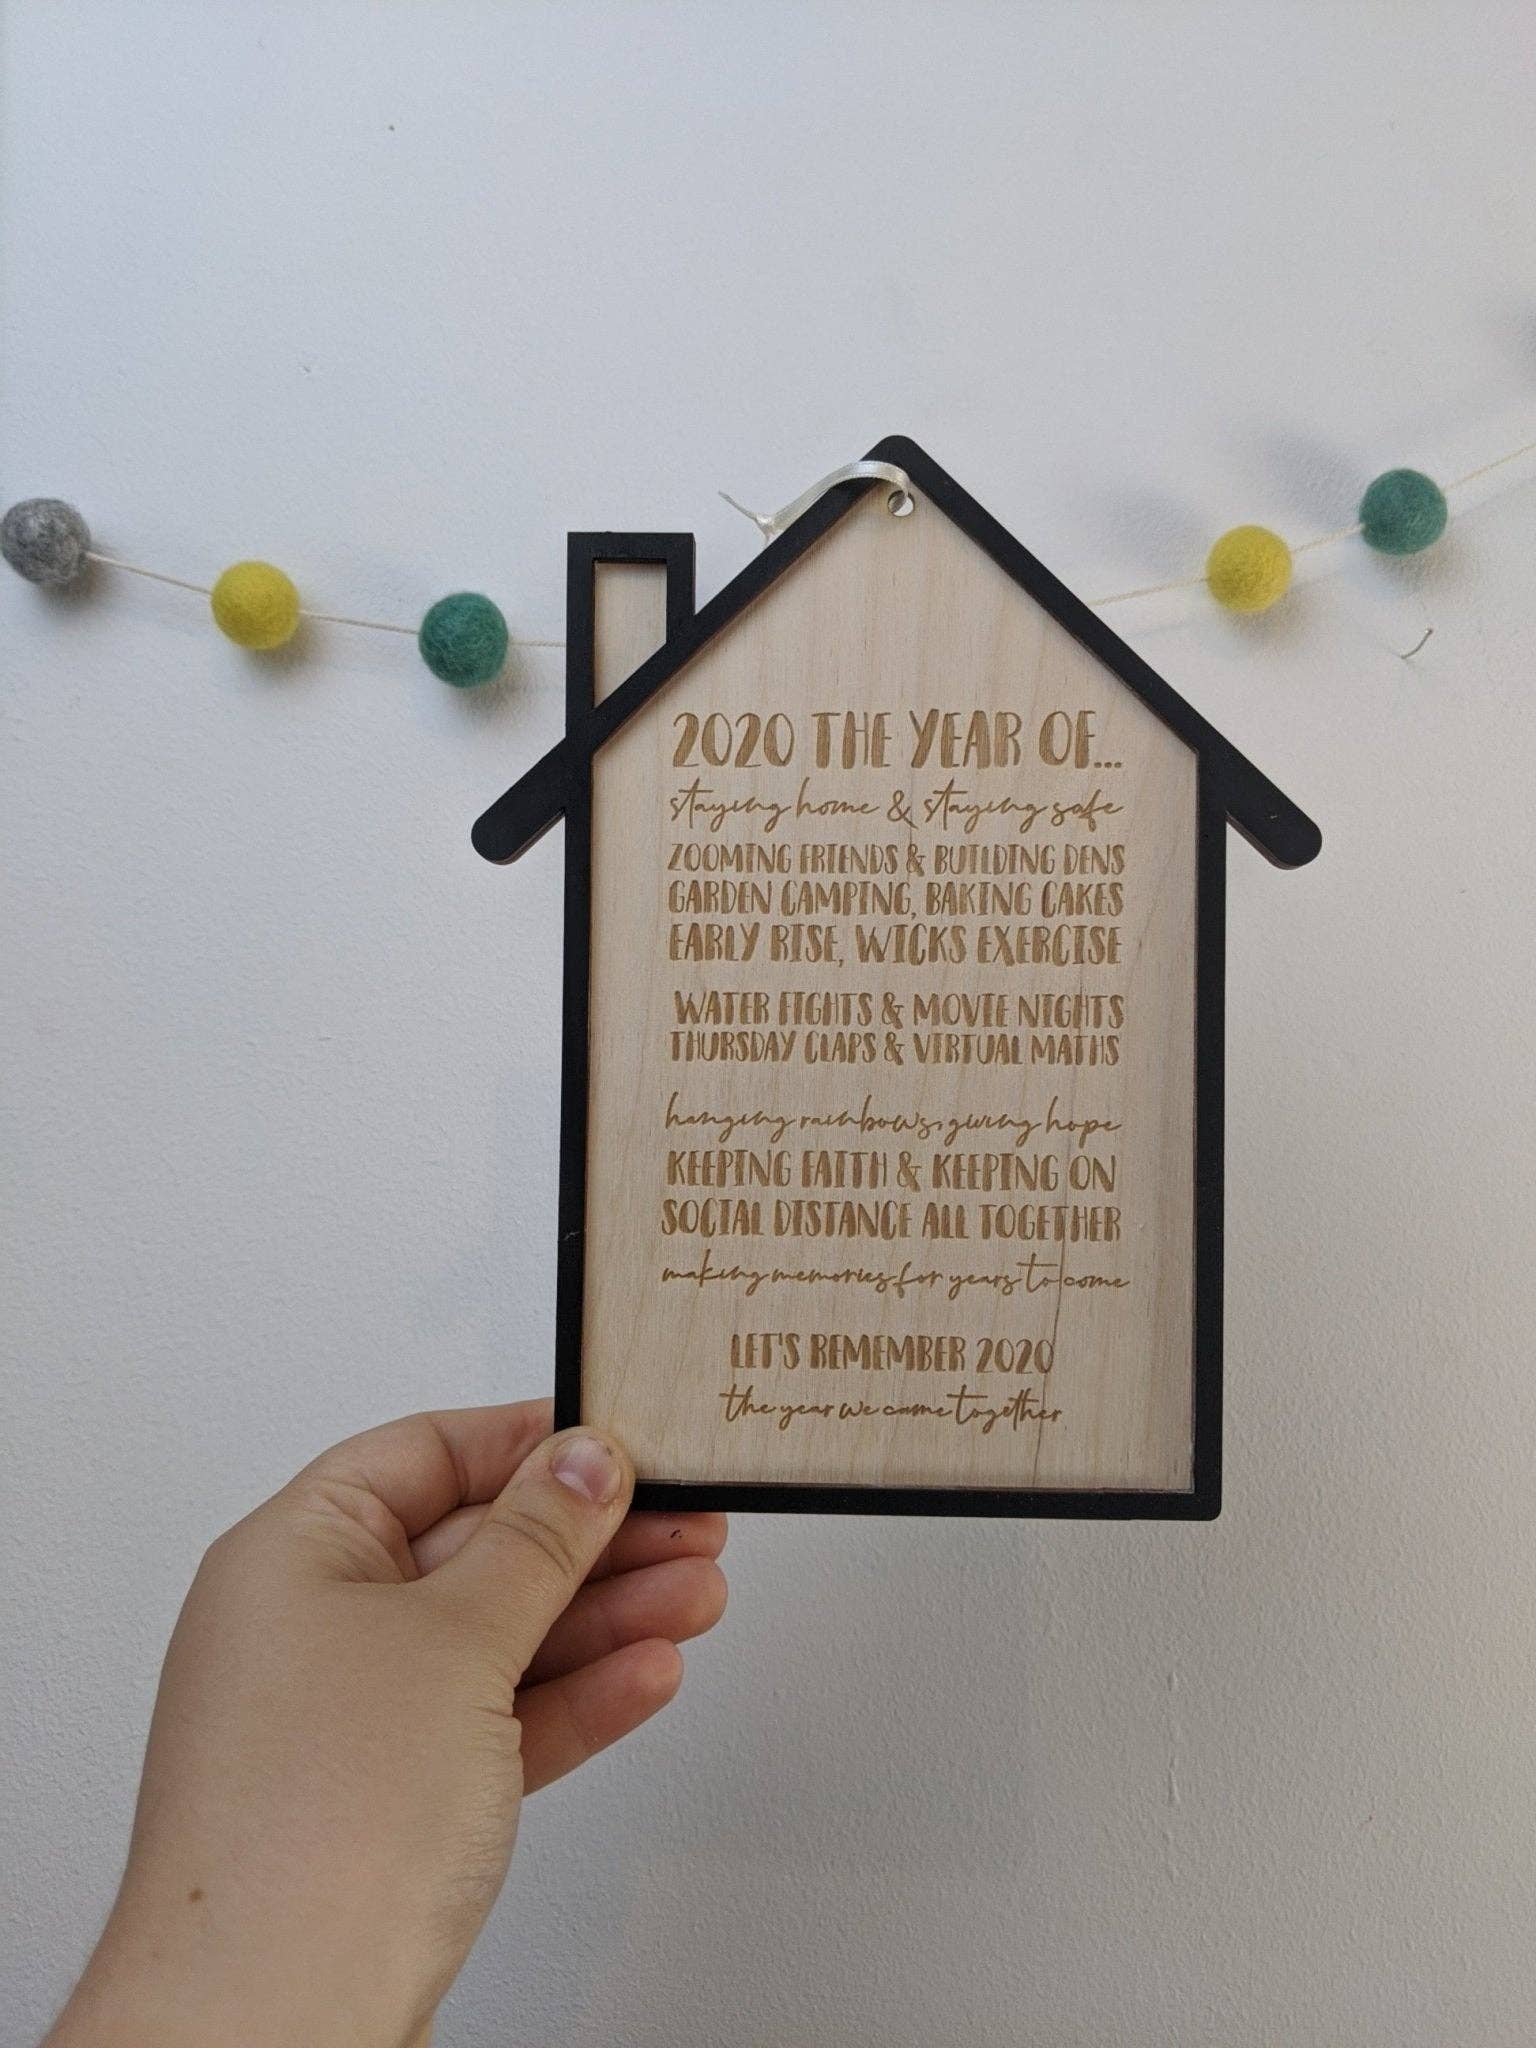 2020 THE YEAR OF...
staying home & staying safe
ZOOMING FRIENDS & BUILDING DENS
GARDEN CAMPING, BAKING CAKES
EARLY RISE, WICKS EXERCISE
WATER FIGHTS & MOVIE NIGHTS
THURSDAY CLAPS & VIRTUAL MATHS
hanging rainbows, giving hope
KEEPING FAITH & KEEPING ON
SOCIAL DISTANCE ALL TOGETHER
making memories for years to come
LET'S REMEMBER 2020
the year we came together